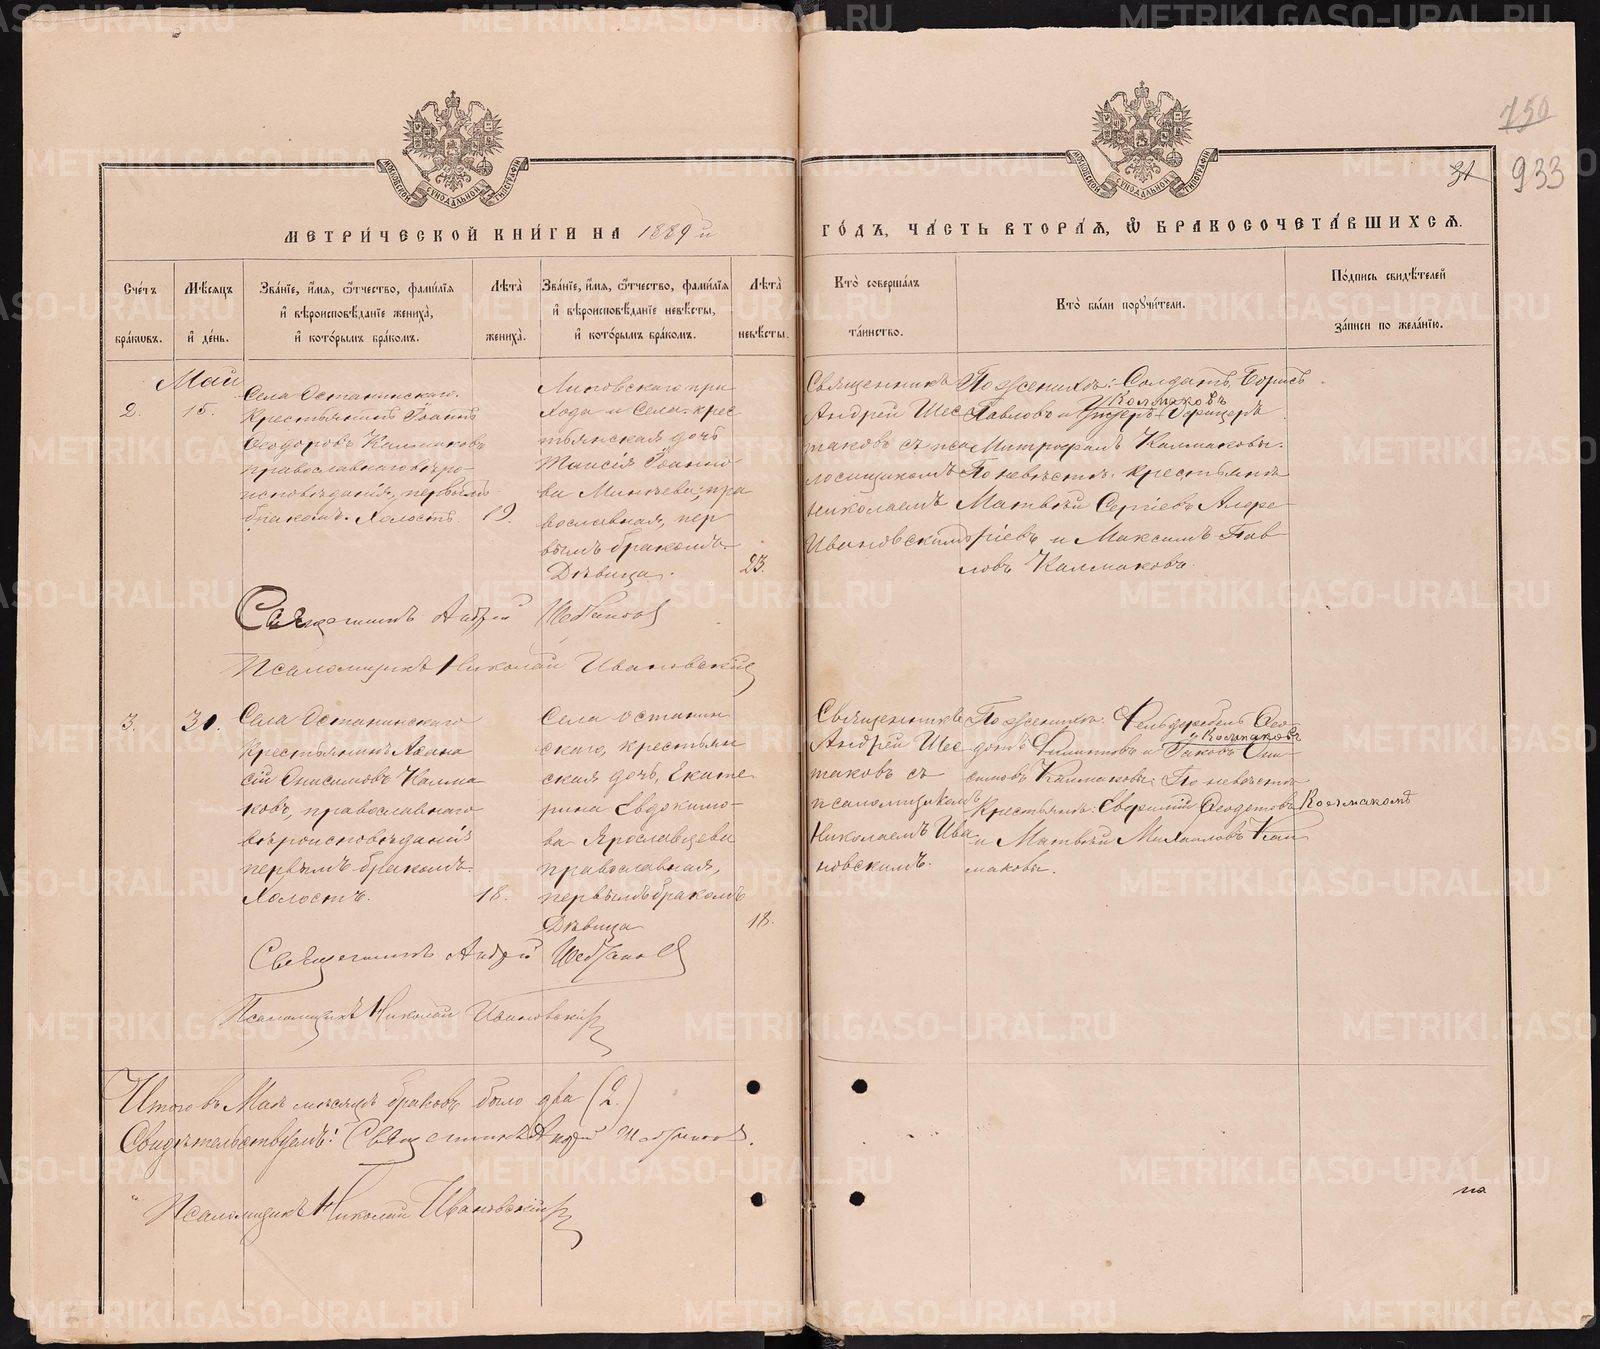 750
933
31
МОСКОВСКОЙ СѴНОДАЛЬНОЙ ТИПОГРАФІИ
МОСКОВСКОЙ СѴНОДАЛЬНОЙ ТИПОГРАФІИ
МЕТРИ́ЧЕСКОЙ КНИ́ГИ НА 1889й ГО́ДЪ, ЧА́СТЬ ВТОРА́Я, Ѡ҆ БРАКОСОЧЕТА́ВШИХСЯ.
Сче́тъ бра́ковъ.
Мѣ́сяцъ и҆ де́нь.
Зва́нїе, и҆́мя, ѻ҆́тчество, фами́лїя
и҆ вѣроисповѣ́данїе жениха̀,
и҆ кото́рымъ бра́комъ.
Лѣта̀ жениха̀.
Зва́нїе, и҆́мя, ѻ҆́тчество, фами́лїя
и҆ вѣроисповѣ́данїе невѣ́сты,
и҆ кото́рымъ бра́комъ.
Лѣта̀ невѣ́сты.
Кто̀ соверша́лъ та́инство.
Кто̀ бы́ли поручи́тели.
По́дпись свидѣ́телей
за́писи по жела́нїю.
Май
2.
15.
Села Останинскаго
Крестьянинъ Іоаннъ
Ѳеодоровъ Калмаковъ
православнаго вѣро-
исповѣданія, первымъ
бракомъ. Холостъ.
19.
Липовскаго при
хода и Села крес
тьянская дочь
Таисія Іоанно
ва Минѣева, пра
вославная, пер
вымъ бракомъ.
Дѣвица.
23.
Священникъ
Андрей Шес
таковъ съ пса
ломщикомъ
Николаемъ
Ивановскимъ
По женихѣ: Солдатъ Борисъ
Колмаковъ
Павловъ и Унтеръ-Офицеръ
Митрофанъ Калмаковы.
По невѣстѣ: крестьяне
Матвѣй Сергіевъ Алфе
ріевъ и Максимъ Пав
ловъ Калмаковъ.
Священникъ Андрей Шестаковъ
Псаломщикъ Николай Ивановскій
3.
30.
Села Останинскаго
Крестьянинъ Аѳана
сій Онисимовъ Калма
ковъ, православнаго
вѣроисповѣданія
первымъ бракомъ.
Холостъ.
18.
Села Останин
скаго, крестьян
ская дочь, Екате
рина Евдокимо-
ва Ярославцева
православная,
первымъ бракомъ
Дѣвица
18.
Священникъ
Андрей Шес
таковъ съ
псаломщикомъ
Николаемъ Ива
новскимъ.
По женихѣ: Фельдфебель Ѳео
Колмаковъ
дотъ Филипповъ и Іаковъ Они
симовъ Калмаковы. По невѣстѣ
Крестьяне: Евфимій Ѳеодотовъ Колмаковъ
и Матвѣй Михаиловъ Кал
маковы.
Священникъ Андрей Шестаковъ
Псаломщикъ Николай Ивановскій
Итого въ Маѣ мѣсяцѣ браковъ было два (2.)
Свидѣтельствуемъ: Священникъ Андрей Шестаковъ.
Псаломщикъ Николай Ивановскій
METRIKI.GASO-URAL.RU